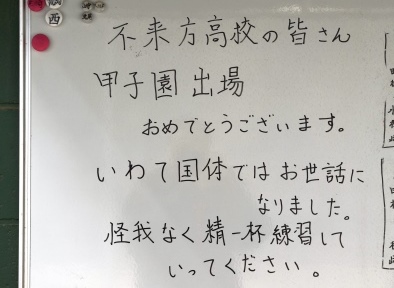 西
不来方高校の皆さん
甲子園出場
おめでとうございます。
いわて国体ではお世話に
なりました。
怪我なく精一杯練習して
いってください。